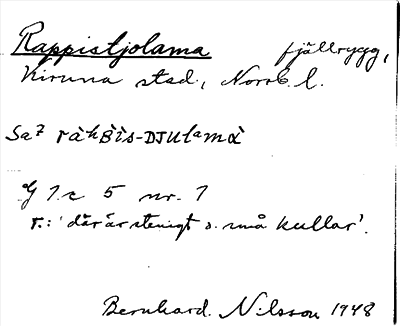 Rappistjolama fjällrygg,
Kiruna stad, Norrb. l.
Sa7
G 7 c 5 nr. 7
r.: 'där är stenigt o. små kullar'.
Bernhard Nilsson 1948